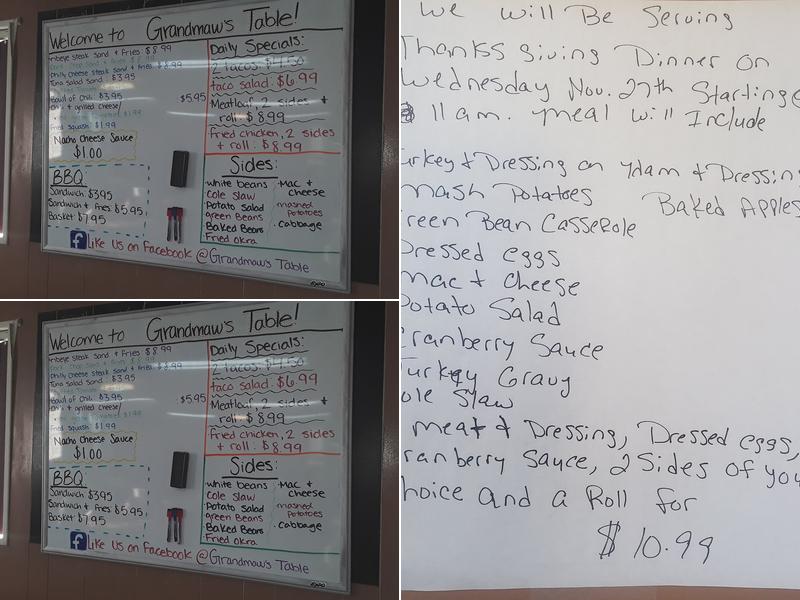 Welcome to Grandmaw's Table!
Ribeye steak sand + Fries $8.99
Philly Cheese steak sand + Fries $8.99
Tuna salad Sand $3.95
Bowl of Chili $3.95
Chili + grilled cheese/
$5.95
Fried Squash $1.99
Nacho Cheese Sauce
$1.00
BBQ
Sandwich $3.95
Sandwich + Fries $5.95
Basket $7.95
Daily Specials:
2 tacos $4.50
taco salad $6.99
Meatloaf, 2 sides +
roll $8.99
Fried chicken, 2 sides
+ roll $8.99
Sides:
white beans
Cole slaw
Potato salad
green Beans
Baked Beans
Fried okra
Mac +
cheese
mashed
Potatoes
cabbage
Like us on Facebook @Grandmaw's Table
EXPO
Welcome to Grandmaw's Table!
Ribeye steak Sand + Fries $8.99
Philly Cheese steak sand + Fries $8.99
Tuna salad Sand $3.95
Bowl of Chili $3.95
Chili + grilled cheese/
$5.95
Fried Squash $1.99
Nacho Cheese Sauce
$1.00
BBQ
Sandwich $3.95
Sandwich + Fries $5.95
Basket $7.95
Daily Specials:
2 tacos $4.50
taco salad $6.99
Meatloaf, 2 sides +
roll $8.99
Fried chicken, 2 sides
+ roll $8.99
Sides:
white beans
Cole slaw
Potato salad
green Beans
Baked Beans
Fried okra
Mac +
cheese
mashed
Potatoes
cabbage
Like us on Facebook @Grandmaw's Table
EXPO
We Will Be Serving
Thanksgiving Dinner on
Wednesday Nov. 27th Starting
11 am. meal will Include
urkey + Dressing or Ham + Dressing
mash Potatoes Baked Apples
reen Bean Casserole
Dressed eggs
mac + Cheese
Potato Salad
Cranberry Sauce
Turkey Gravy
ole Slaw
meat + Dressing, Dressed eggs,
ranberry Sauce, 2 Sides of you
hoice and a Roll for
$ 10.99